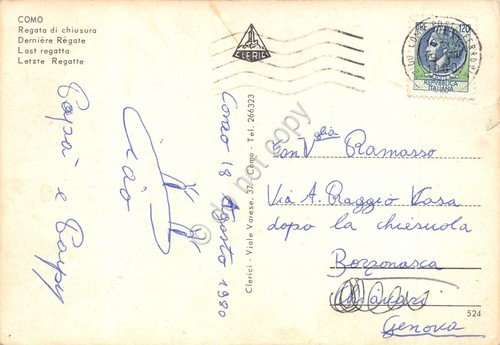 COMO
Regata di chiusura
Dernière Régate
Last regatta
Letzte Regatte
CLERICI
120
REPUBBLICA
ITALIANA
Como 18 Agosto 1980
Ciao
Papà e
Clerici - Viale Varese, 37 - Como - Tel. 266323
do not copy
Fam Vglia Ramasso
Via A. Raggio Casa
dopo la chiesuola
Borzonasca
Chiavari
Genova
524